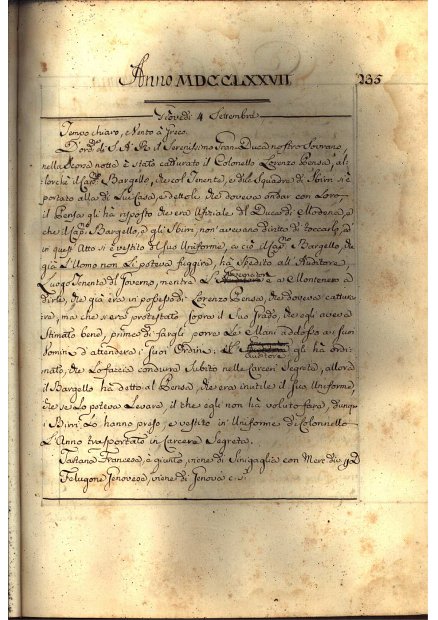 Anno MDCCLXXVII 235
Giovedì 4 Settembre
Tempo chiaro, Vento à Greco.
D'ord.e di S. A. R. il Serenissimo Gran Duca nostro Sovrano
nella scorsa notte è stato catturato il Colonello Lorenzo Pensa, al=
lorche il Cap.o Bargello, che col Tenente, e di Squadra di Sbirri si è
portato alla di Lui Casa, e dettoli che doveva andar con Loro,
il Pensa gli hà risposto che era Ufiziale del Duca di Modena, e
che il Cap.o Bargello, è gli Sbirri, non avevano diritto di toccarlo, ed
in quest'Atto si è vestito il suo Uniforme, ciò il Cap.o Bargello, che
già L'Uomo non Li poteva fuggire, hà Spedito all'Auditore,
Luogo Tenente di Governo, mentre è a Montenero a
dirle, che già era in possesso di Lorenzo Pensa, che doveva cattura=
re, ma che s'era protestato sopra il Suo Grado, che egli aveva
Stimato bene, prima di fargli porre Le Mani addosso ai suoi
Uomini d'attendere i Suoi Ordini: Auditore gli hà ordi=
nato, che Lo faccia condurre Subito nelle Carceri Segrete, allora
il Bargello hà detto al Pensa, che era inutile il Suo Uniforme,
che se Lo poteva Levare, il che egli non hà voluto fare, dunque
i Birri Lo hanno preso, e vestito in Uniforme di Colonnello
L'Anno trasportato in Carcere Segreta.
Tartana Francese, è giunta, viene di Sinigaglia con Merc.
Felugone Genovese, viene di Genova c. s.a